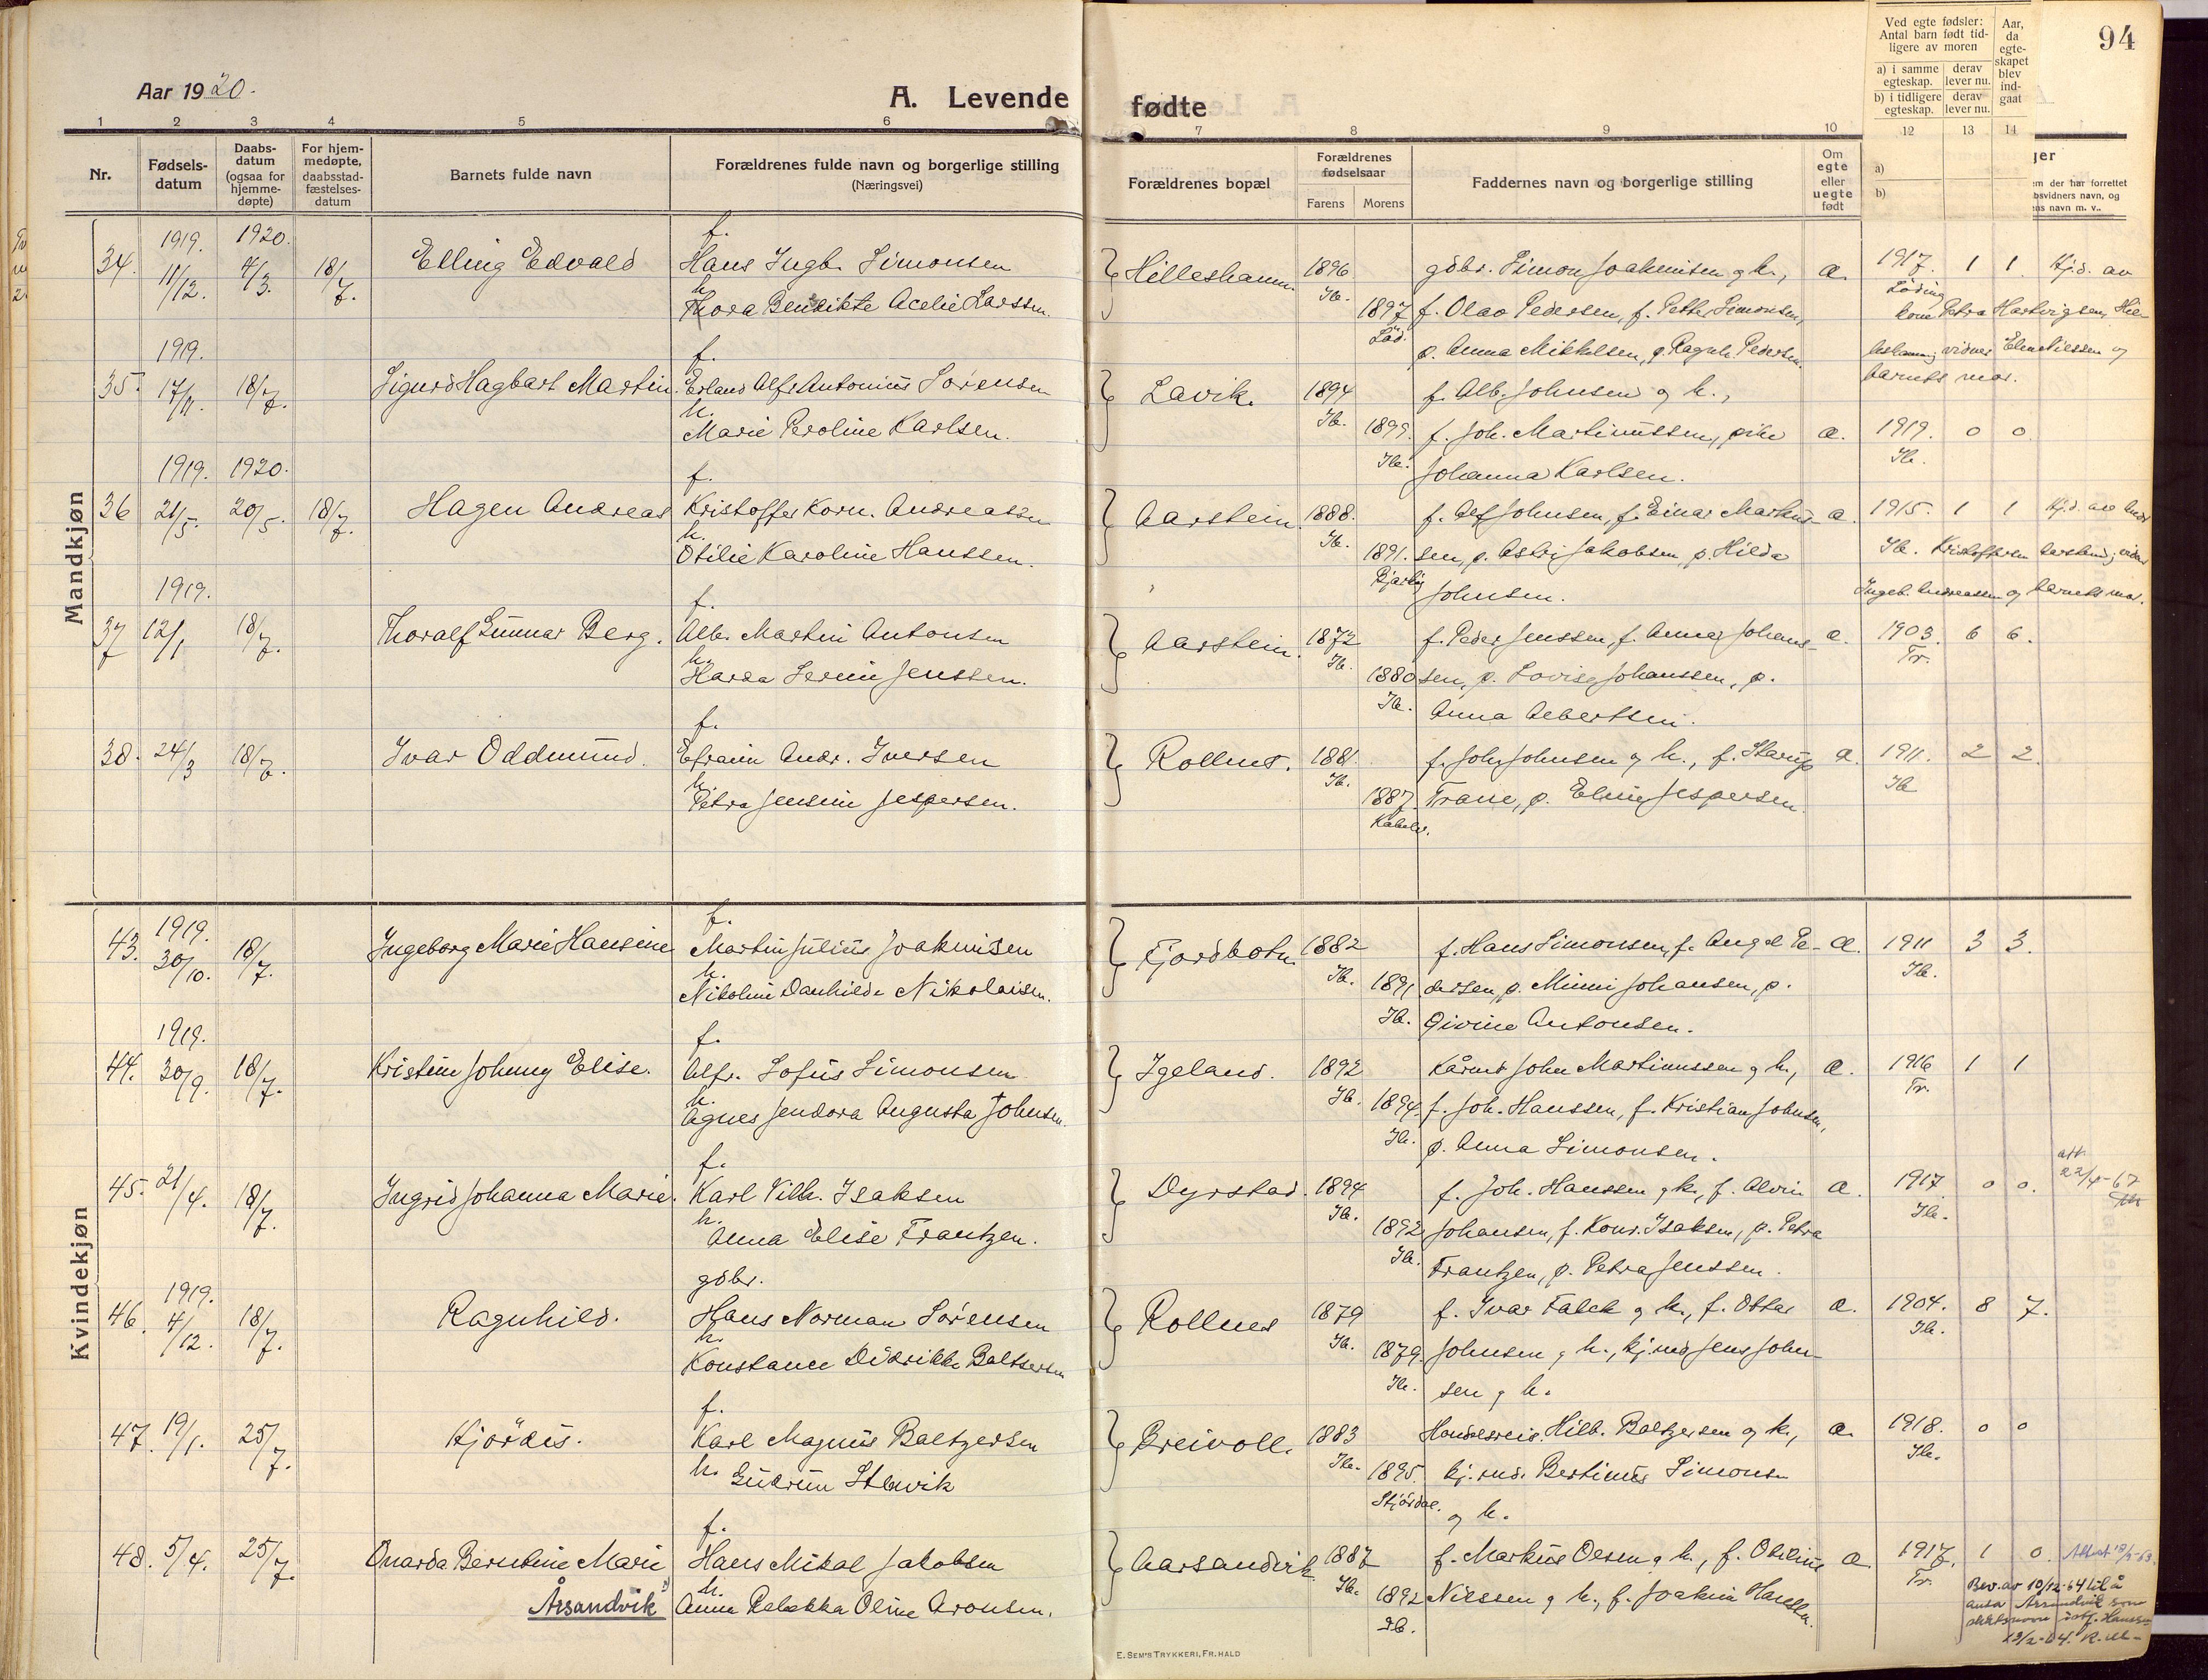 94
Aar 1920.
A. Levende
fødte
1 2 3 4 5 6 7 8 9 10 12 13 14
Nr.
Fødsels-datum
Daabs-datum (ogsaa for hjemme-døpte)
For hjem-medøpte, daabsstad-fæstelses-datum
Barnets fulde navn
Forældrenes fulde navn og borgerlige stilling
(Næringsvei)
Forældrenes bopæl
Forældrenes fødselsaar
Farens Morens
Faddernes navn og borgerlige stilling
Om egte eller uegte født
Ved egte fødsler:
Antal barn født tid-
ligere av moren
a) i samme egteskap. derav lever nu.
b) i tidligere egteskap. derav lever nu.
Aar, da egte-skapet blev ind-gaat
a)
b)
Mandkjøn
1919. 1920. f.
34. 11/12. 4/3. 18/7. Elling Edvald Hans Ingb. Simonsen Hilleshamn. 1896 gdbr. Simon Joakimsen og h., a. 1917. 1 1 Hj.d. av
Ib. Löding
h. Thora Bendikte Acelie Larssen. 1897 f. Olav Pedersen, f. Petter Simonsen, Petra Hartvigsen, Hil-
Löd. p. Anna Mikkelsen, p. Ragnh. Pedersen. vidner Elen Nilssen og
barnets mor.
1919. f.
35. 17/11. 18/7. Sigurd Hagbart Martin. Erland Alfr. Antonius Sørensen Lavik. 1894 f. Alb. Johnsen og h.,
Ib.
h. Marie Peroline Karlsen. 1899. f. Joh. Martinussen, pike a. 1919. 0 0
Ib. Johanna Karlsen. Ib.
1919. 1920. f.
36 21/5. 20/5. 18/7. Hagen Andreas Kristoffer Korn. Andreassen Aarstein. 1888. f. Alf Johnsen, f. Einar Markus- a. 1915. 1 1 Hj.d. av
Ib.
h. Otilie Karoline Hanssen. 1891. sen, p. Astri Jakobsen, p. Hilda Ib. Kristoffersen
Johnsen. Ingeb. Andreassen og barnets mor.
1919. f.
37 12/1 18/7. Thoralf Gunnar Berg. Alb. Martin Antonsen Aarstein. 1872 f. Peder Jenssen, f. Annar Johans- a. 1903. 6 6.
Ib. Tr.
h. Harda Sermi Jenssen. 1880 sen, p. Lovise Johanssen, p.
Ib. Anna Albertsen.
f.
38. 24/3 18/7. Ivar Oddmund. Efraim Andr. Iversen Rollnes. 1881. f. Joh. Johnsen og h., f. Starup a. 1911. 2 2.
Ib. Ib
h. Petra Jensine Jespersen. 1887. Trane, p. Eline Jespersen.
Kabelv.
Kvindekjøn
1919. f.
43. 30/10. 18/7. Ingeborg Marie Hansine Martin Julius Joakimsen Fjordbotn. 1882 f. Hans Simonsen, f. Angel Pe- a. 1911 3 3.
Ib. Ib.
h. Nikoline Danhilde Nikolaisen. 1891 dersen, p. Minni Johansen, p.
Ib. Givine Antonsen.
1919. f.
44. 30/9. 18/7. Kristine Johnny Elise. Alfr. Sofus Simonsen Igeland. 1892 Kårmd John Martinussen og h., a. 1916 1 1
Ib. Tr.
h. Agnes Jendora Augusta Johnsen. 1894. f. Joh. Hanssen, f. Kristian Johnsen,
Ib. p. Anna Simonsen.
f.
45. 21/4. 18/7. Ingrid Johanna Marie. Karl Vilh. Isaksen Dyrstad. 1894 f. Joh. Hanssen og h., f. Alvin a. 1917 0 0. att. 22/4-67
Ib. Ib.
h. Anna Elise Frantzen. 1892 Johansen, f. Konr. Isaksen, p. Petra
Ib. Frantzen, p. Petra Jenssen.
1919. gdbr.
46. 4/12. 18/7. Ragnhild. Hans Norman Sørensen Rollnes 1879 f. Ivar Falck og h., f. Ottar a. 1904. 8 7.
Ib. Ib.
h. Konstance Didrikke Baltsersen 1879. Johnsen og h., kj.md Jens John-
Ib. sen og h.
f.
47. 19/1. 25/7. Hjördis. Karl Magnus Baltzersen Breivoll. 1883 Handelsreis. Hilb. Baltzersen og h., a. 1918. 0 0
Ib. Ib.
h. Gudrun Stavik 1895. kj.md. Bertinus Simonsen
Stjördal. og h.
f.
48. 5/4. 25/7. Onarda Berntine Marie Hans Mikal Jakobsen Aarsandvik. 1887 f. Markus Olsen og h., f. Otilius a. 1917. 1 0.
Ib. Tr.
Årsandvik h. Anna Rebekka Oline Aronsen. 1892 Nilssen og h., f. Joakim Hanssen.
Ib.
Bev. av 10/12-64 til å
anta Årsandvik som
slektsnavn istf. Hanssen
E. SEM'S TRYKKERI, FR.HALD